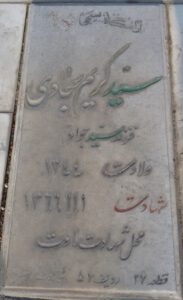 سید کریم سجادی
فرزند سید جواد
ولادت ۱۳۴۴
شهادت ۱۳۶۶/۱/۱
محل شهادت
قطعه ۲۶ ردیف ۵۲